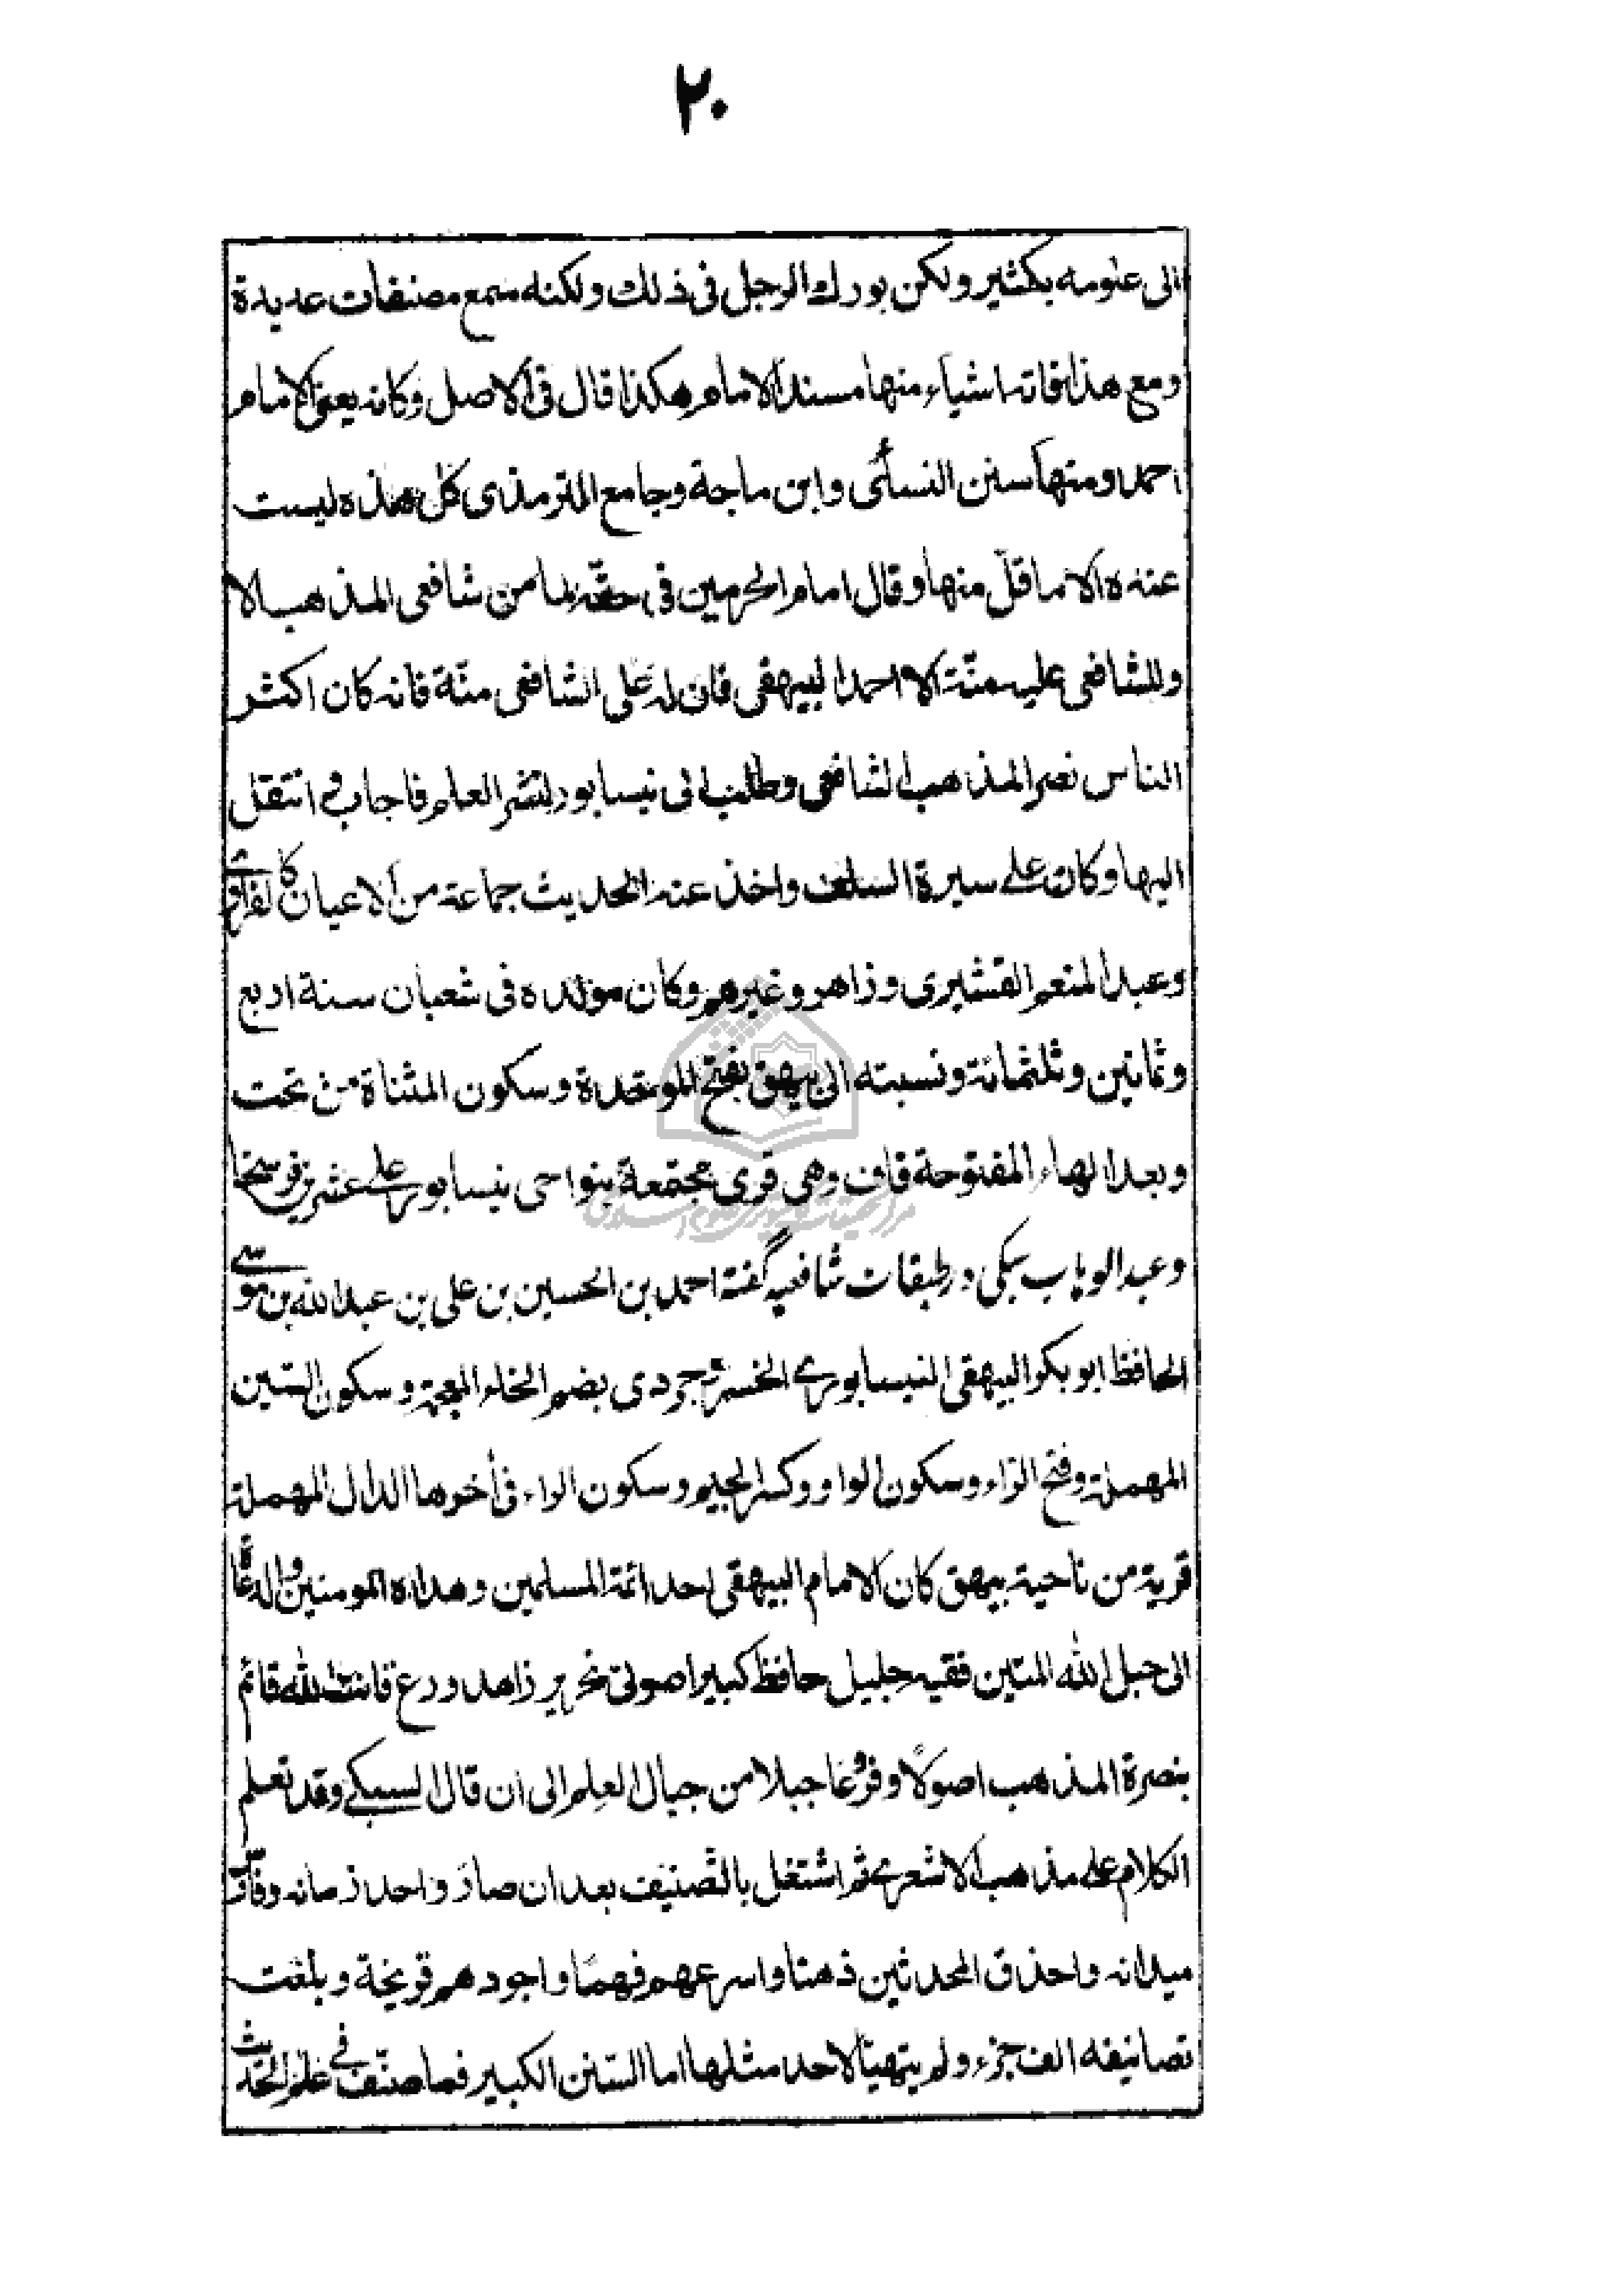 ٢٠
الى علومه بكثير ولكن بورك الرجل فى ذلك ولكنه سمع مصنفات عديدة
ومع هذا فاته اشياء منها مسند الامام هكذا قال فى الاصل وكانه يعنى الامام
احمد ومنها سنن النسائى وابن ماجة وجامع الترمذى كل هذه ليست
عنده الا ما قل منها وقال امام الحرمين فى حقه ما من شافعى المذهب الا
وللشافعى عليه منّة الا احمد البيهقى فان له على الشافعى منة فانه كان اكثر
الناس نصرا لمذهب الشافعى وطلب الى نيسابور لنشر العلم فاجاب و انتقل
اليها وكان على سيرة السلف واخذ عنه الحديث جماعة من الاعيان كالفراوى
وعبد المنعم القشيرى وزاهر وغيرهم وكان مولده فى شعبان سنة اربع
وثمانين وثلثمائة ونسبته الى بيهق بفتح الموحدة وسكون المثناة من تحت
وبعد الهاء المفتوحة قاف وهى قرى مجتمعة بنواحى نيسابور على عشرين فرسخا
وعبد الوہاب سبکی در طبقات شافعیہ گفتہ احمد بن الحسين بن على بن عبد الله بن موسى
الحافظ ابو بكر البيهقى النيسابورى الخسروجردى بضم الخاء المعجمة وسكون السين
المهملة وفتح الراء وسكون الواو وكسر الجيم وسكون الراء فى أخرها الدال المهملة
قرية من ناحية بيهق كان الامام البيهقى احد ائمة المسلمين وهداة المومنين والدعاة
الى حبل الله المتين فقيه جليل حافظ كبير اصولى نحرير زاهد ورع قانت لله قائم
بنصرة المذهب اصولًا وفروعًا جبلا من جبال العلم الى ان قال السبكى وقد تعلم
الكلام على مذهب الاشعرى ثم اشتغل بالتصنيف بعد ان صار واحد زمانه وفارس
ميدانه واحذق المحدثين ذهنا واسرعهم فهمًا واجودهم قريحة وبلغت
تصانيفه الف جزء ولم يتهيا لاحد مثلها اما السنن الكبير فما صنّف فى علم الحديث